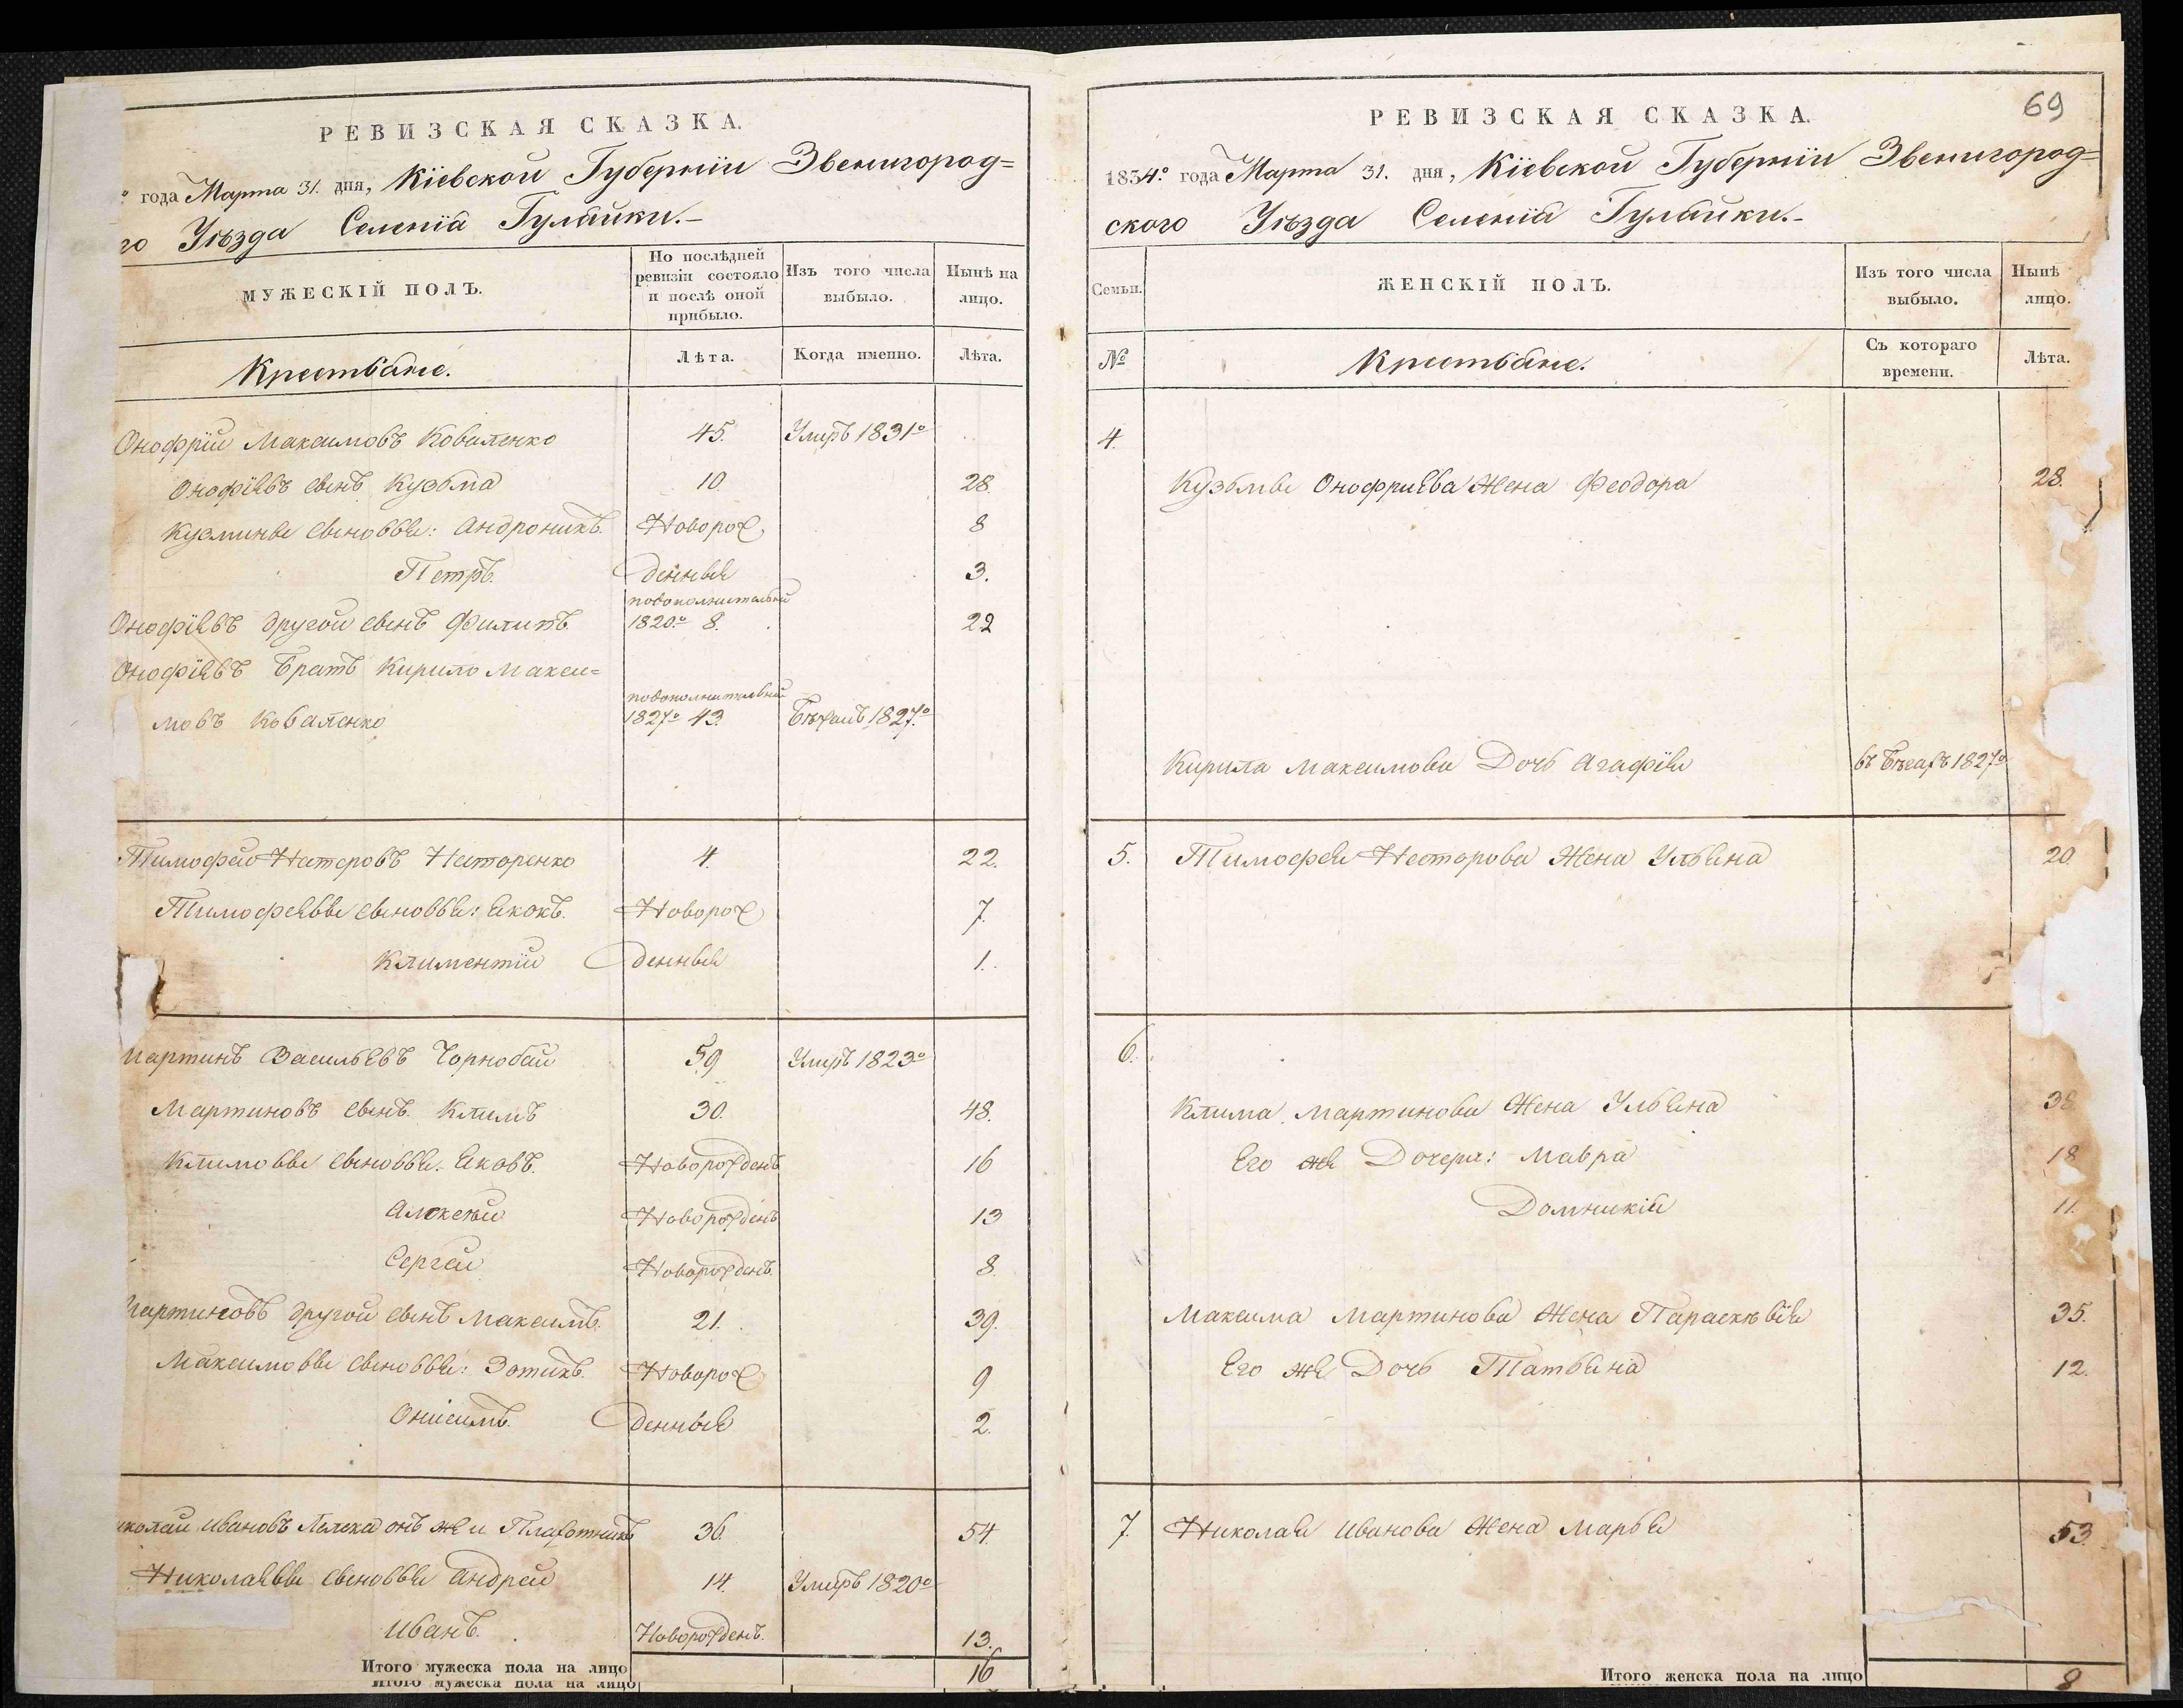 РЕВИЗСКАЯ СКАЗКА.
года Марта 31. дня, Кіевской Губерніи Звенигород=
го Уѣзда Селенія Гулайки.-
МУЖЕСКІЙ ПОЛЪ.
По послѣдней ревизіи состояло и послѣ оной прибыло.
Изъ того числа выбыло.
Нынѣ на лицо.
Крестьяне.
Лѣта.
Когда именно.
Лѣта.
Онофрій Максимовъ Коваленко 45. Умеръ 1831º
Онофріевъ сынъ Кузьма 10. 28.
Кузмины сыновья: Андроникъ. Новорож 8
Петръ. денныя 3.
Онофріевъ другой сынъ Филипъ. подополнительной 1820º 8. 22
Онофріевъ Братъ Кирило Макси=
мовъ Коваленко подополнительной 1827º 43. Бѣжалъ 1827º
Тимофей Нестеровъ Несторенко 4. 22.
Тимофеевы сыновья: Новорож 7.
Климентій денныя 1.
Мартинъ Васильевъ Чорнобай 59 Умеръ 1823º
Мартиновъ сынъ. Климъ 30. 48.
Климовы сыновья: Яковъ. Новорожденъ 16
Алексѣй Новорожденъ 13
Сергей Новорожденъ. 8.
Мартиновъ другой сынъ Максимъ. 21. 39.
Максимовы сыновья: Зотикъ. Новорож 9
Онисимъ. денныя 2.
иколай Ивановъ Лелека онъ же и 36. 54.
Николаевы сыновья Андрей 14. Умеръ 1820º
Иванъ. Новорожденъ. 13.
Итого мужеска пола на лицо 16
Итого мужеска пола на лицо
69
РЕВИЗСКАЯ СКАЗКА.
1834º года Марта 31. дня, Кіевской Губерніи Звенигород=
ского Уѣзда Селенія Гулайки.-
Семьи.
ЖЕНСКІЙ ПОЛЪ.
Изъ того числа выбыло.
Нынѣ лицо.
№
Крестьяне.
Съ котораго времени.
Лѣта.
4.
Кузьмы Онофриева Жена Феодора 28.
Кирила Максимова Дочь Агафія въ 1827º
5. Тимофея Несторова Жена Ульяна 20.
6.
Клима Мартинова Жена Ульяна 38
Его же Дочери: Мавра 18
Домникія 11.
Максима Мартинова Жена Параскѣвія 35.
Его же Дочь Татьяна 12.
7. Николая Иванова Жена Марья 53.
Итого женска пола на лицо 8